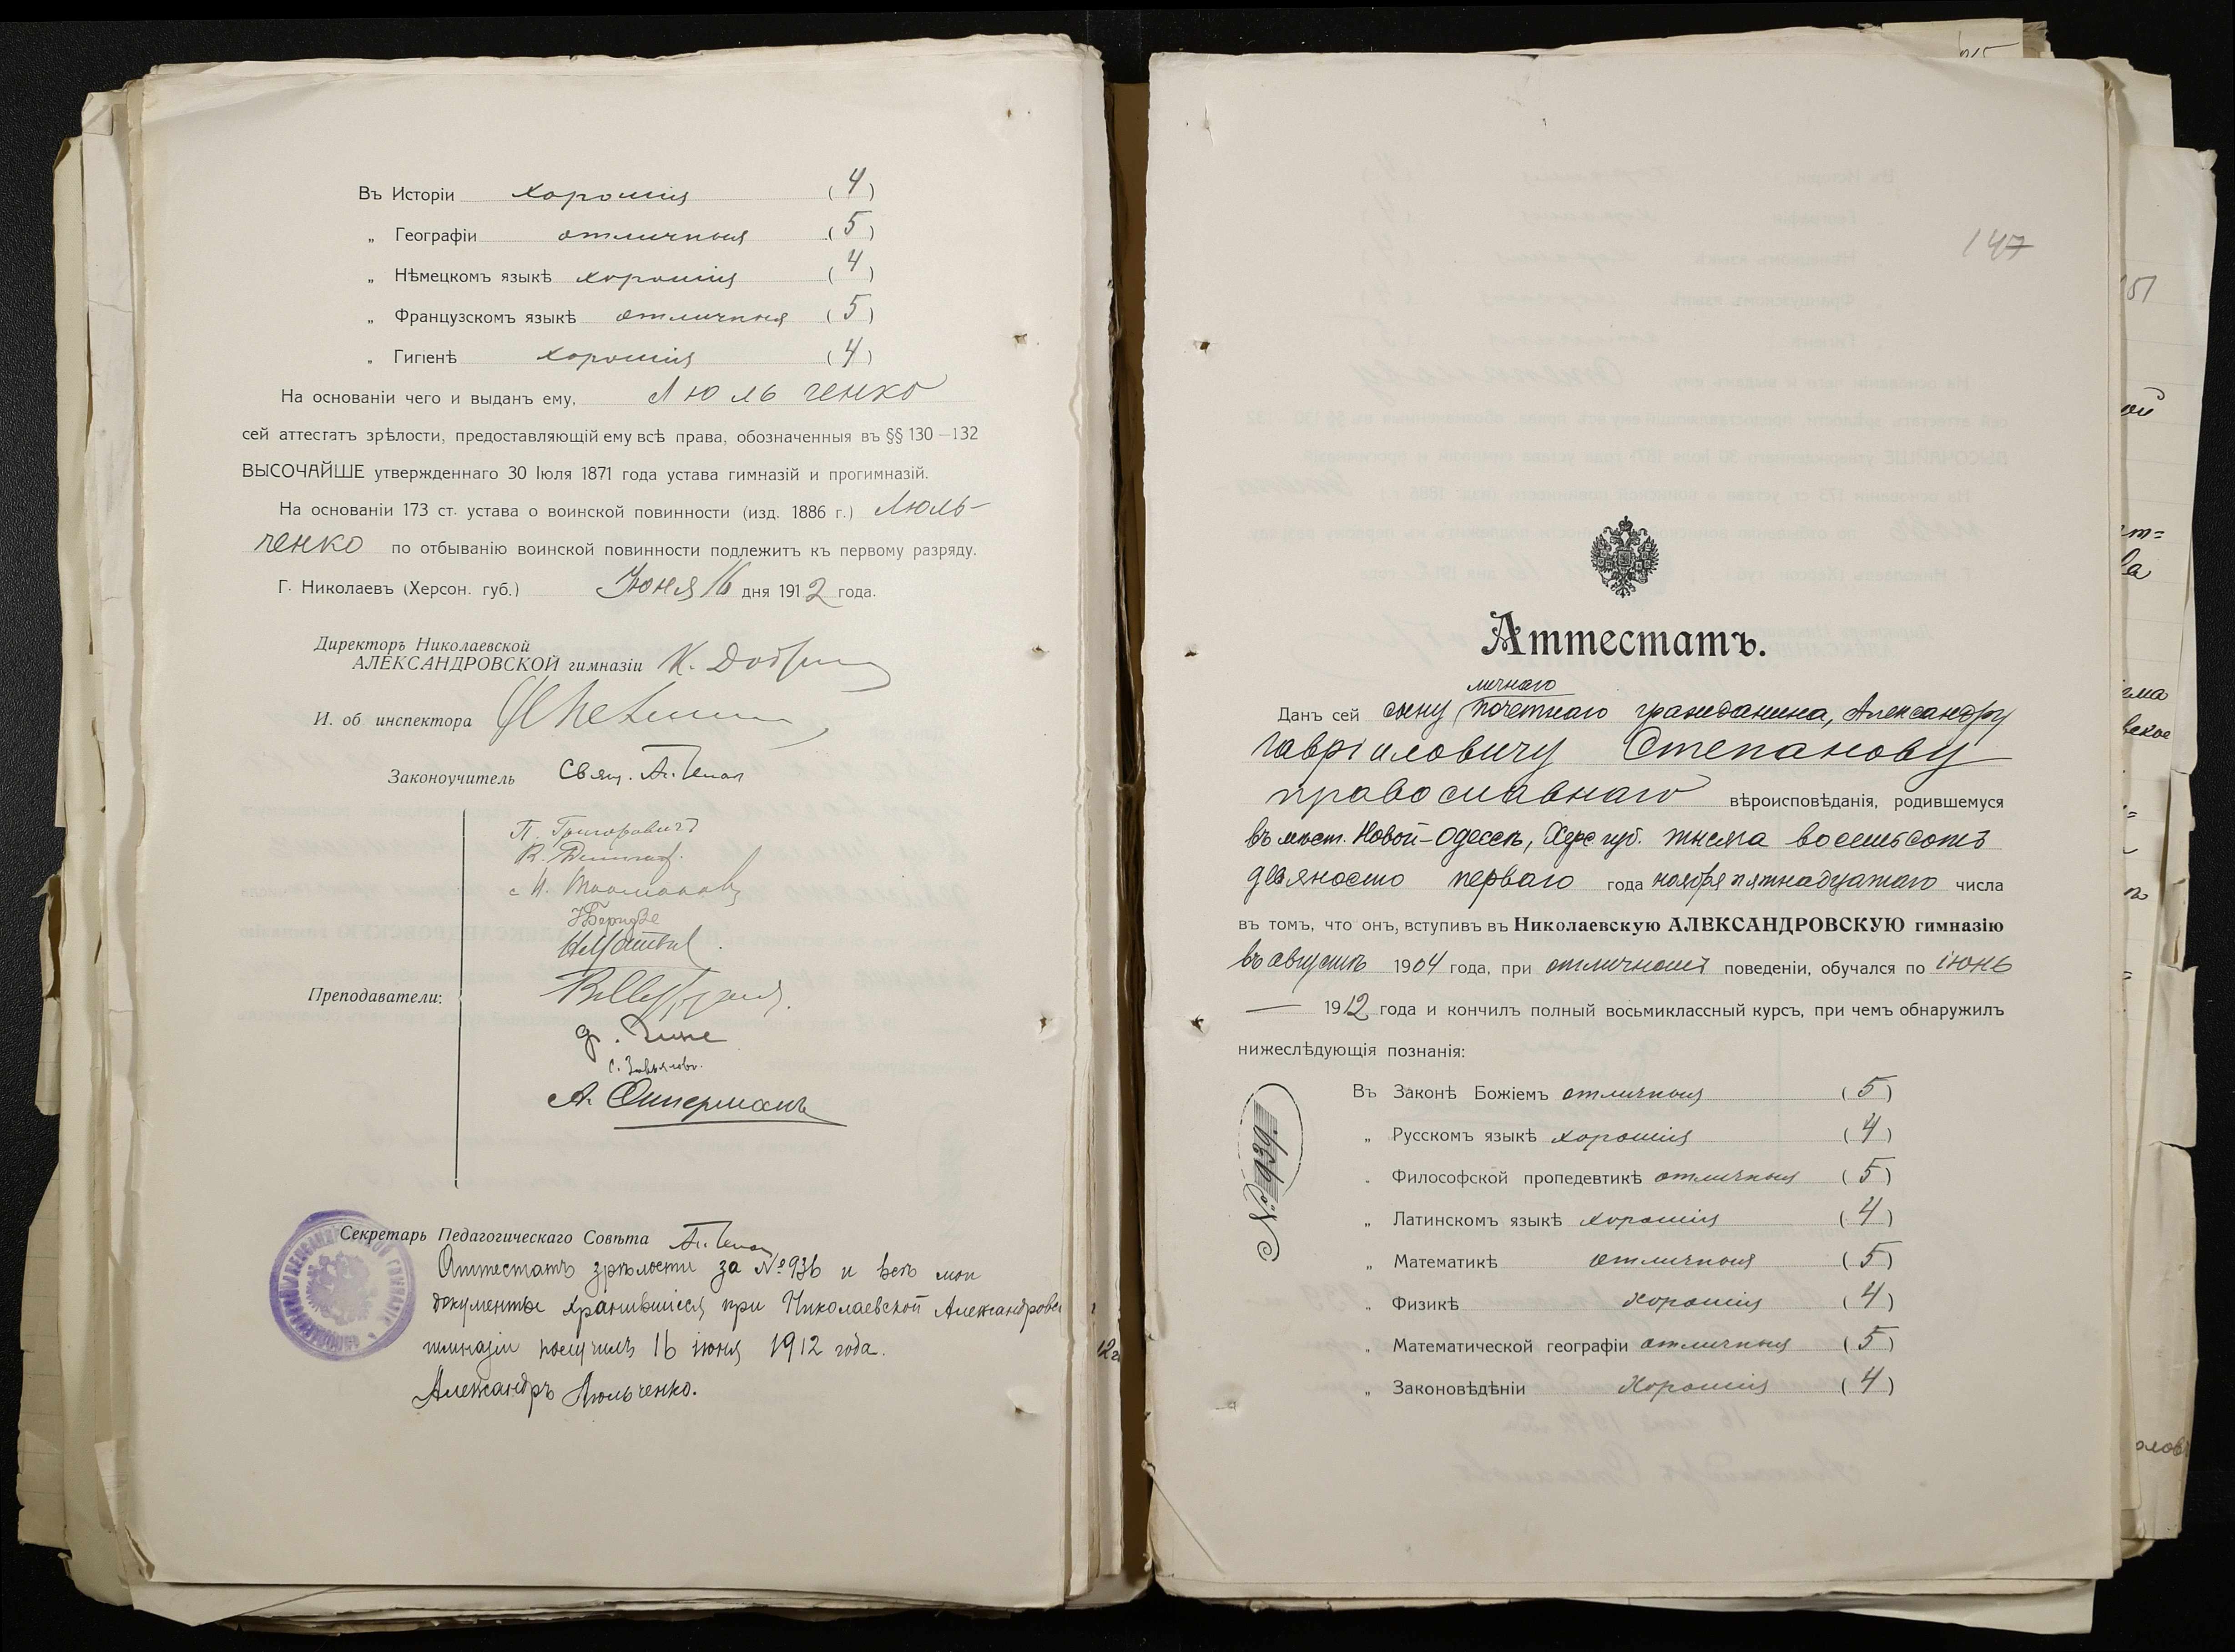 Въ Исторіи хорошія (4)
„ Географіи отличныя (5)
„ Нѣмецкомъ языкѣ хорошія (4)
„ Французскомъ языкѣ отличныя (5)
„ Гигіенѣ хорошія (4)
На основаніи чего и выданъ ему, Люльченко
сей аттестатъ зрѣлости, предоставляющій ему всѣ права, обозначенныя въ §§ 130—132
ВЫСОЧАЙШЕ утвержденнаго 30 Іюля 1871 года устава гимназій и прогимназій.
На основаніи 173 ст. устава о воинской повинности (изд. 1886 г.) Люль-
ченко по отбыванію воинской повинности подлежитъ къ первому разряду.
Г. Николаевъ (Херсон. губ.) Іюня 16 дня 1912 года.
Директоръ Николаевской
АЛЕКСАНДРОВСКОЙ гимназіи К.
И. об инспектора
Законоучитель Свящ. Ал.
П. Григоровичъ
Преподаватели:
С. Завьялов.
А. Опперманъ
Секретарь Педагогическаго Совѣта Ал.
Аттестатъ зрѣлости за № 936 и всѣ мои
документы хранившіеся при Николаевской Александровск
гимназіи получилъ 16 іюня 1912 года.
Александръ Люльченко.
147
Аттестатъ.
личнаго
Данъ сей сыну почетнаго гражданина, Александру
Гавріиловичу Степанову
православнаго вѣроисповѣданія, родившемуся
въ мѣст. Новой-Одессѣ, Херс. губ. тысяча восемьсотъ
девяносто перваго года ноября пятнадцатаго числа
въ томъ, что онъ, вступивъ въ Николаевскую АЛЕКСАНДРОВСКУЮ гимназію
въ августѣ 1904 года, при отличномъ поведеніи, обучался по іюнь
— 1912 года и кончилъ полный восьмиклассный курсъ, при чемъ обнаружилъ
нижеслѣдующія познанія:
Въ Законѣ Божіемъ отличныя (5)
„ Русскомъ языкѣ хорошія (4)
„ Философской пропедевтикѣ отличныя (5)
„ Латинскомъ языкѣ хорошія (4)
„ Математикѣ отличныя (5)
„ Физикѣ хорошія (4)
„ Математической географіи отличныя (5)
„ Законовѣдѣніи хорошія (4)
№ 939.